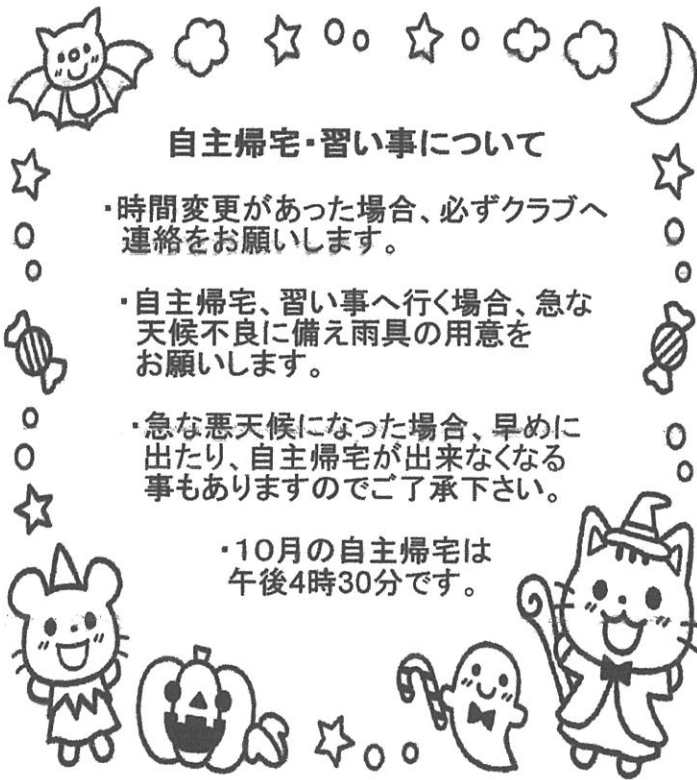 自主帰宅・習い事について
・時間変更があった場合、必ずクラブへ
連絡をお願いします。
・自主帰宅、習い事へ行く場合、急な
天候不良に備え雨具の用意を
お願いします。
・急な悪天候になった場合、早めに
出たり、自主帰宅が出来なくなる
事もありますのでご了承下さい。
・10月の自主帰宅は
午後4時30分です。